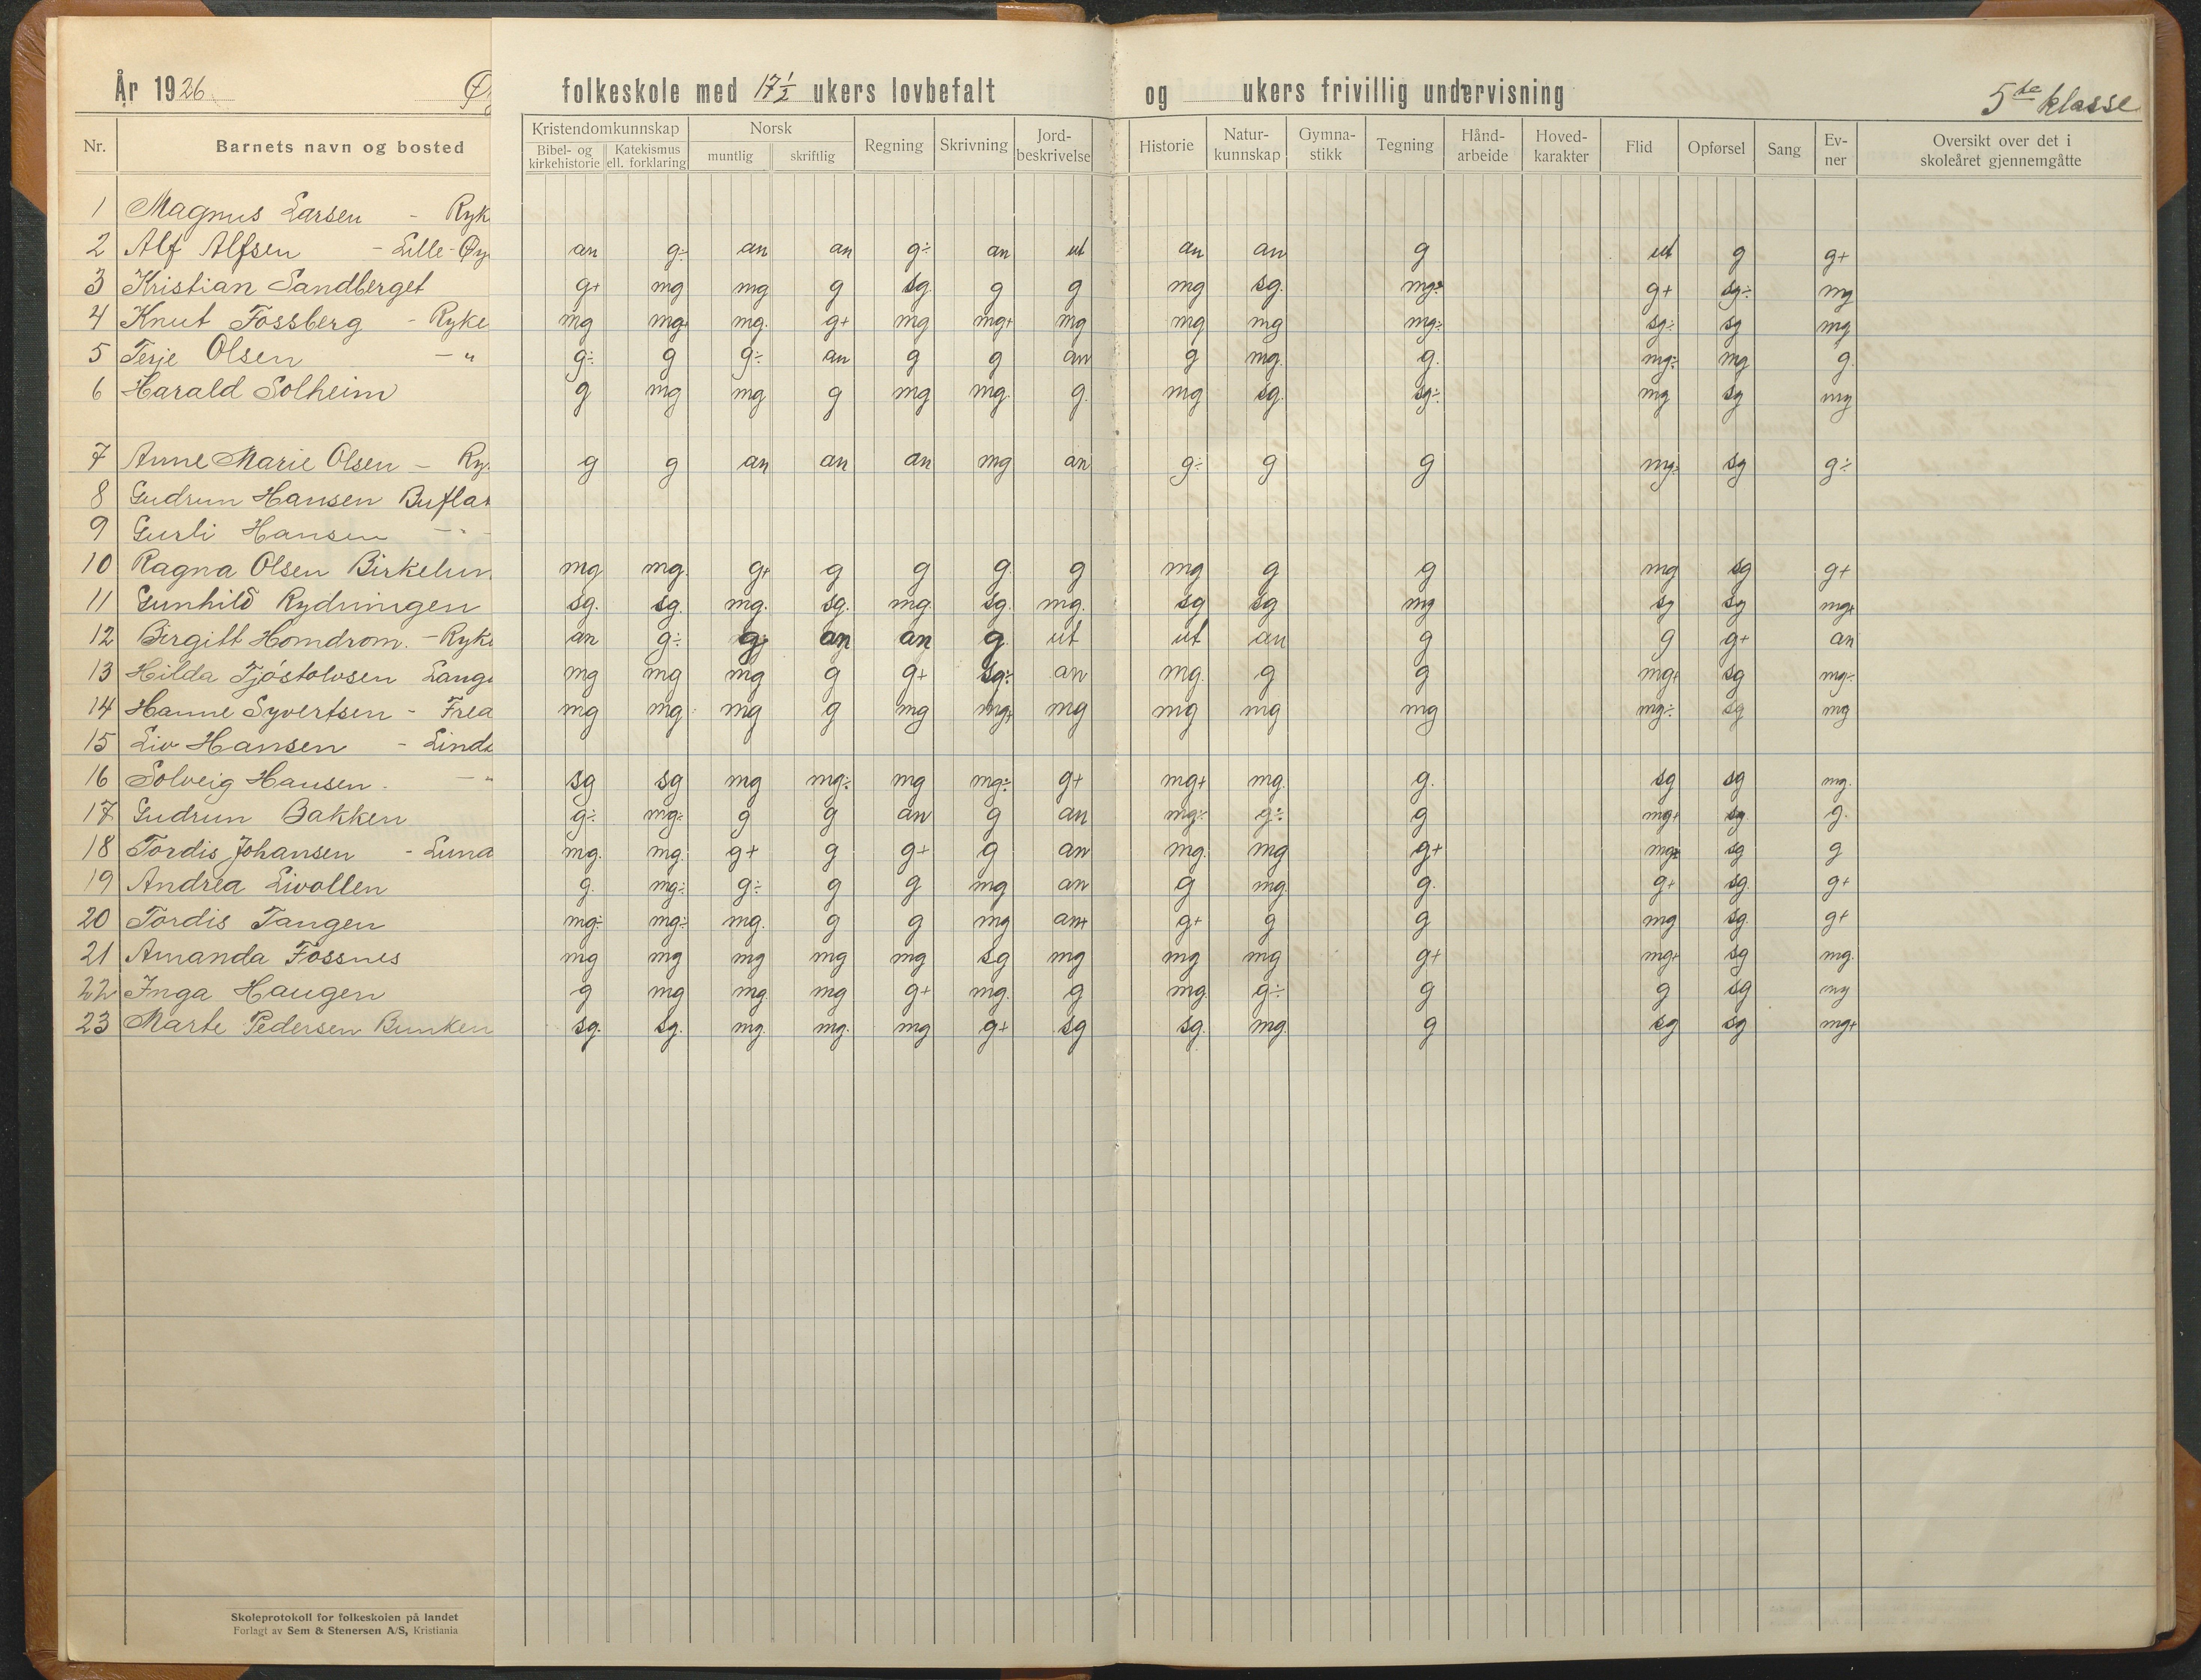 År 1926 Øy folkeskole med 17 1/2 ukers lovbefalt og ukers frivillig undervisning 5te klasse
Nr. Barnets navn og bosted Kristendomkunnskap Bibel- og kirkehistorie Katekismus ell. forklaring Norsk muntlig skriftlig Regning Skrivning Jord-beskrivelse Historie Natur-kunnskap Gymna-stikk Tegning Hånd-arbeide Hoved-karakter Flid Opførsel Sang Ev-ner Oversikt over det i skoleåret gjennemgåtte
1 Magnus Larsen - Ryk
2 Alf Alfsen - Lille-Øy an g÷ an an g÷ an ut an an g ut g g+
3 Kristian Sandberget g+ mg mg g sg. g g mg sg. mg÷ g+ sg÷ mg
4 Knut Fossberg - Ryke mg mg+ mg. g+ mg mg+ mg mg mg mg÷ sg÷ sg mg
5 Terje Olsen - " g÷ g g÷ an g g an g mg. g. mg÷ mg g.
6 Harald Solheim g mg mg g mg mg. g. mg sg. sg÷ mg sg mg
7 Anne Marie Olsen - Ry. g g an an an mg an g÷ g g mg÷ sg g÷
8 Gudrun Hansen Buflat
9 Gurli Hansen - " -
10 Ragna Olsen Birkelun mg mg. g+ g g g. g mg g g mg sg g+
11 Gunhild Rydningen sg. sg. mg. sg. mg. sg. mg. sg sg mg sg sg mg+
12 Birgitt Homdrom. - Ryke an g÷ g÷ an an g. ut ut an g g g+ an
13 Hilda Tjóstolvsen Lange mg mg mg g g+ sg÷ an mg. g g mg+ sg mg÷
14 Hanne Syvertsen - Frea mg mg mg g mg mg+ mg mg mg mg mg÷ sg mg
15 Liv Hansen - Linda
16 Solveig Hansen. - " sg sg mg mg÷ mg mg÷ g+ mg+ mg. g. sg sg mg.
17 Gudrun Bakken g÷ mg÷ g g an g an mg÷ g÷ g mg+ sg g.
18 Tordis Johansen - Luna mg. mg. g+ g g+ g an mg. mg g+ mg+ sg g
19 Andrea Livollen g. mg÷ g÷ g g mg an g mg. g. g+ sg. g+
20 Tordis Tangen mg÷ mg÷ mg. g g mg an+ g+ g g mg sg. g+
21 Amanda Fossnes mg mg mg mg mg sg mg mg mg g+ mg+ sg mg.
22 Inga Haugen g mg mg. mg g+ mg. g mg. g÷ g g sg mg
23 Marte Pedersen Bunken sg. sg. mg. mg. mg g+ sg sg. mg. g sg sg mg+
Skoleprotokoll for folkeskolen på landet
Forlagt av Sem & Stenersen A/S, Kristiania